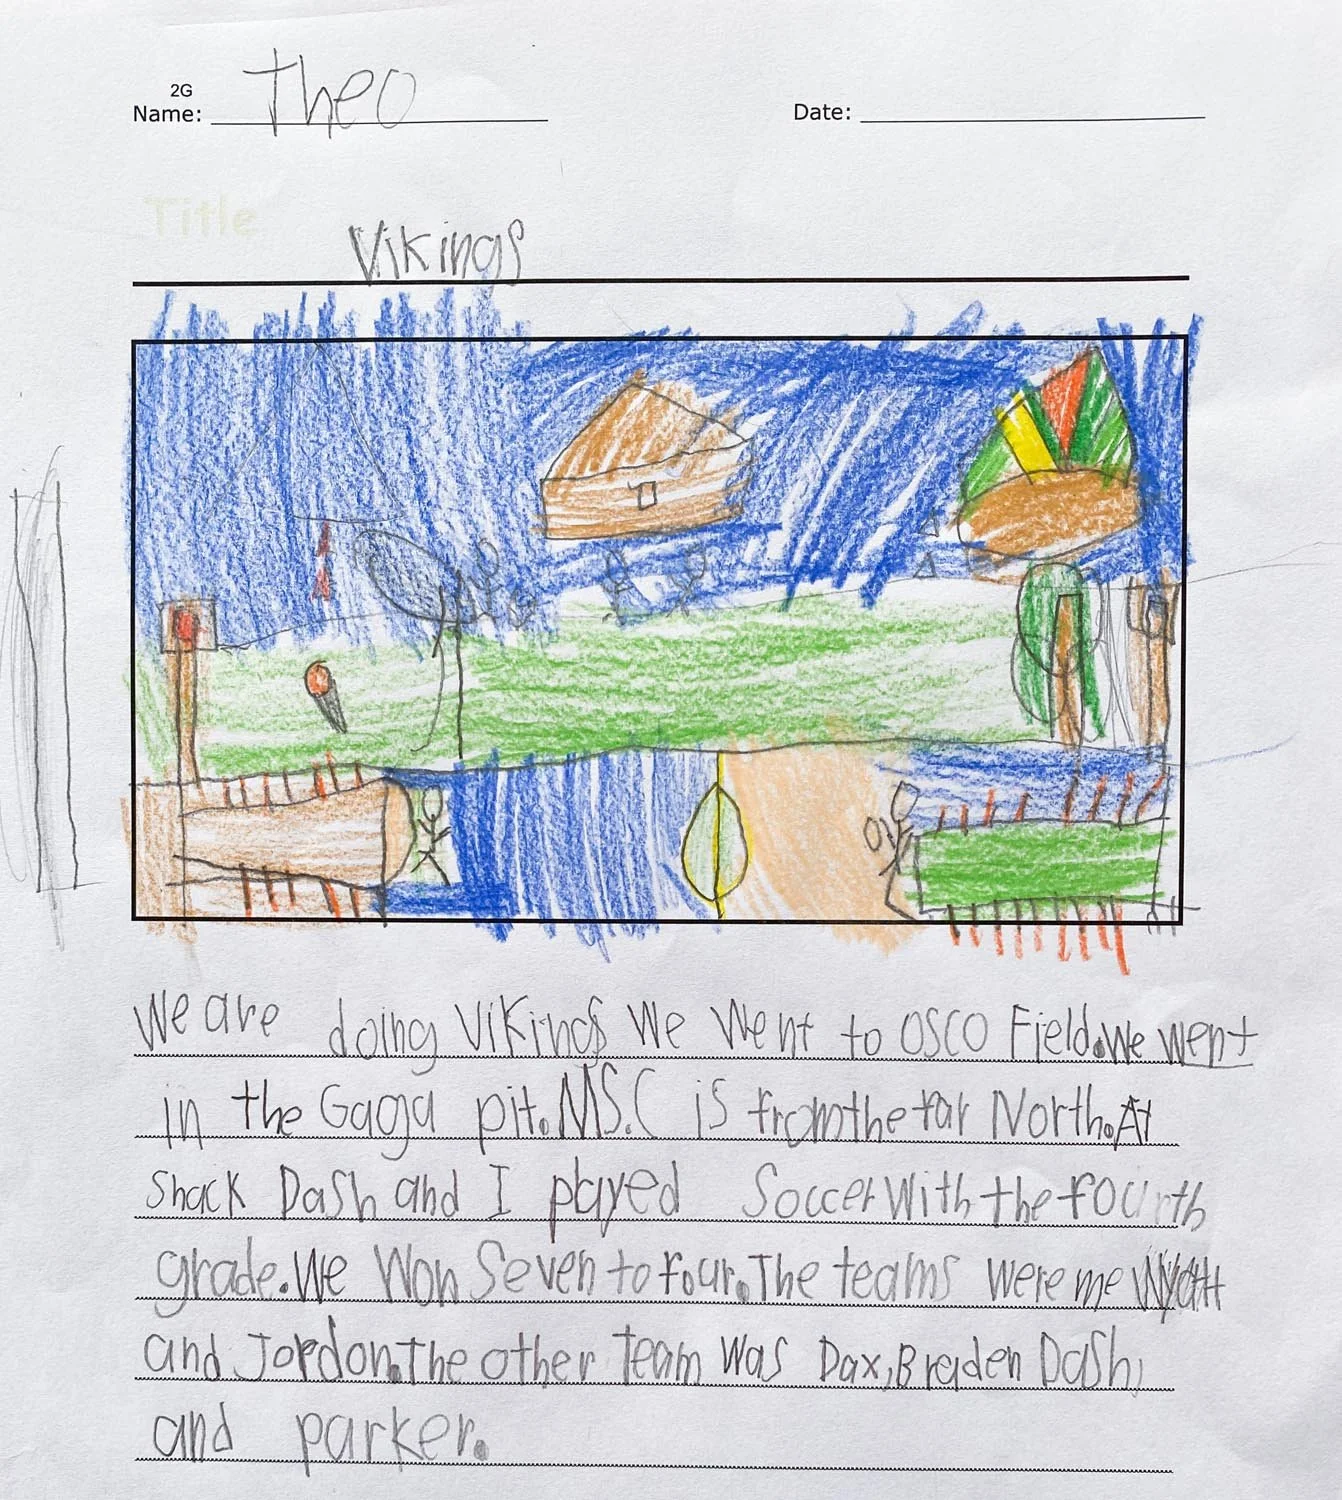 2G
Name: Theo
Date:
Title
Vikings
We are doing Vikings We Went to OSCO Field.We went
in the Gaga pit.MS.C is from the far North.At
Snack Dash and I played Soccer With the fourth
grade.We Won Seven to four.The teams were me Wyatt
and Jordon.The other Team Was Dax,Braden Dash,
and parker.